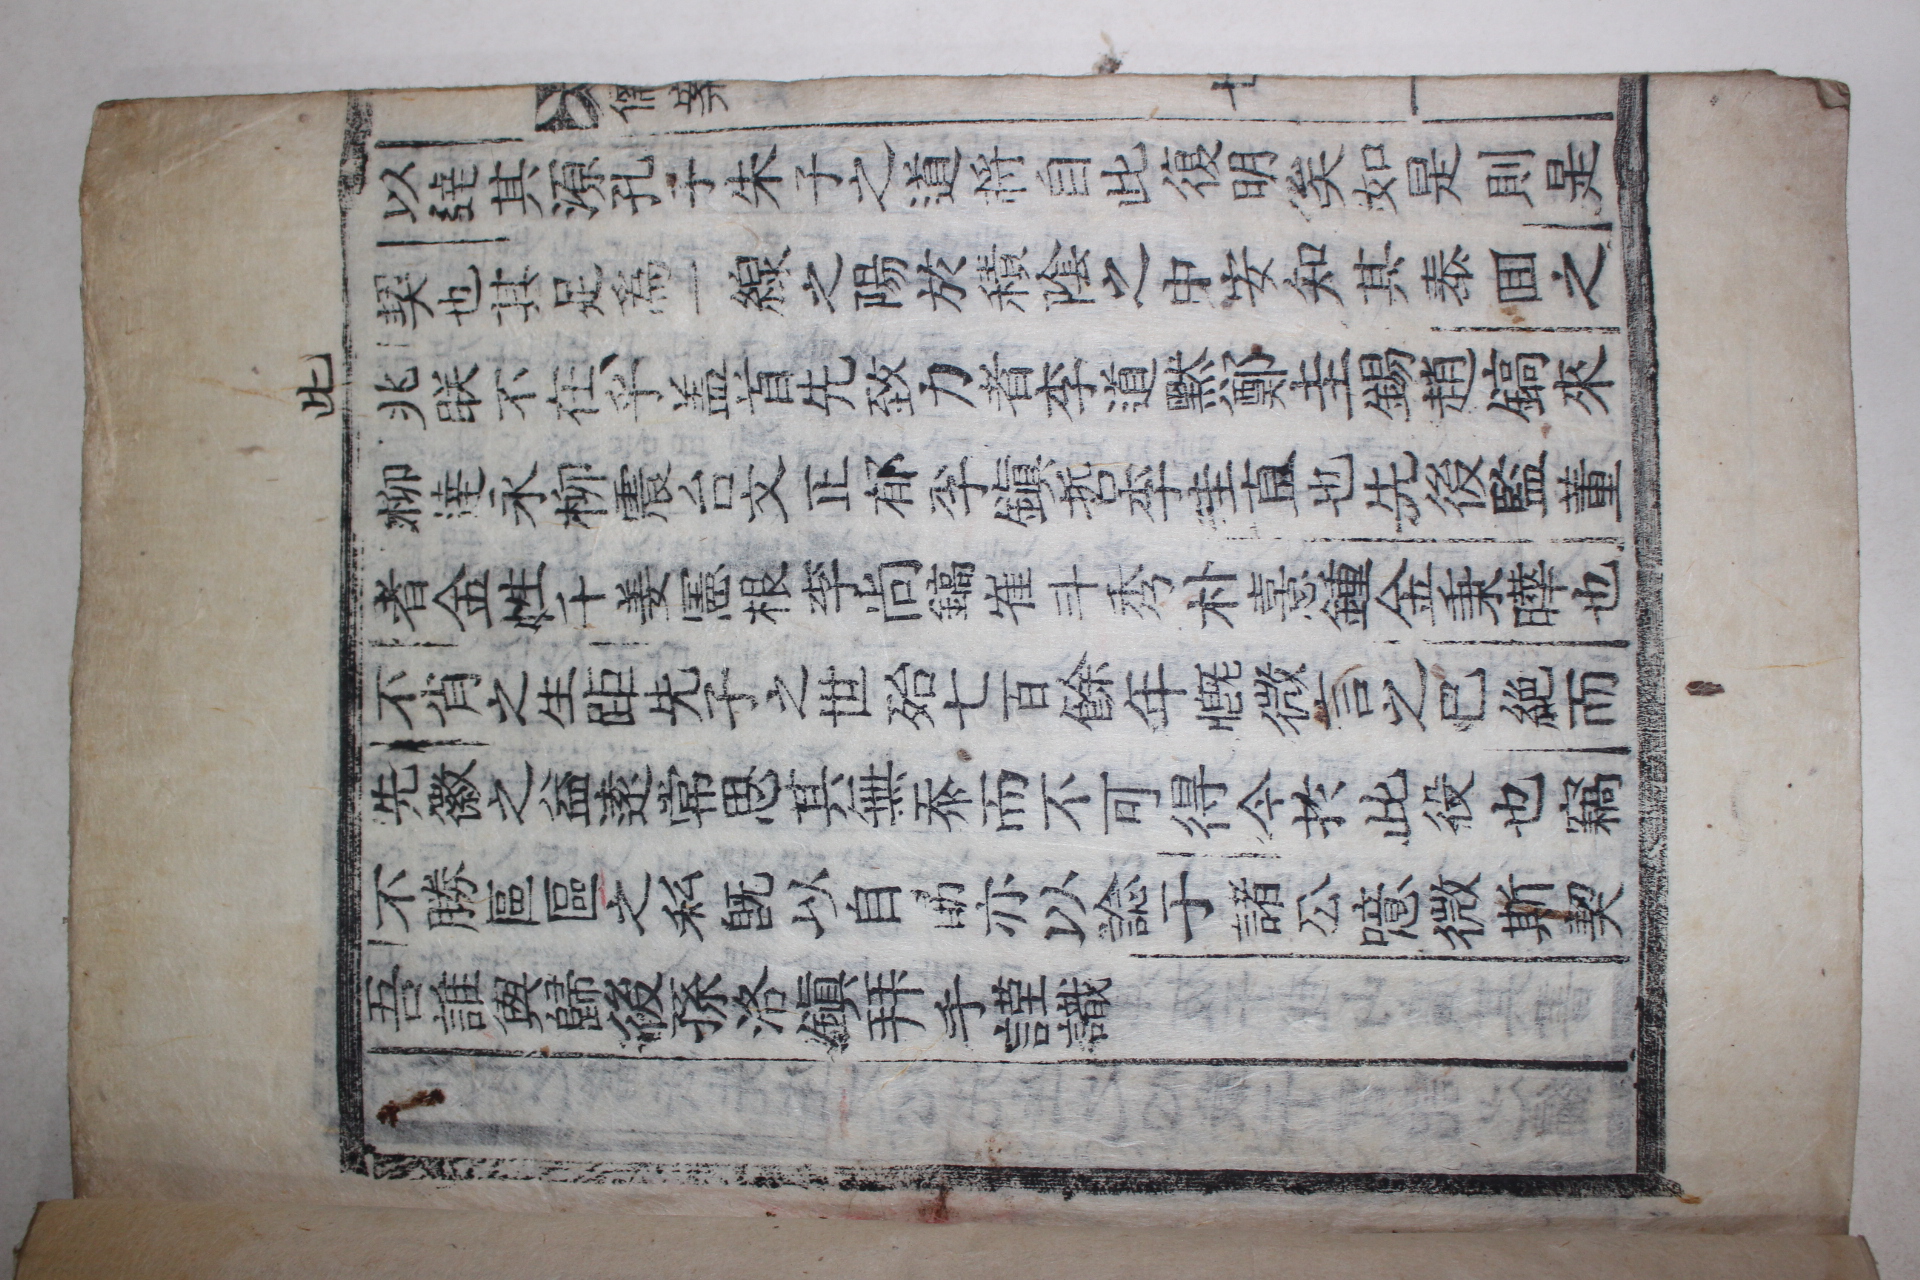 以達其源孔子朱子之道將自此復明矣如是則是
契也其足爲一線之陽於積陰之中安知其泰回之
兆眹不在乎盖首先致力者李道默鄭圭錫趙鎬來
柳達永柳震台文正郁李鎭哲李圭直也先後監董
者金性十姜 根李尙鎬崔斗秀朴憲鍾金秉曄也
不肖之生距先子之世殆七百餘年慨微言之已絕而
先徽之益遠常思其無忝而不可得今於此役也竊
不勝區區之私旣以自勖亦以諗于諸公噫微斯契
吾誰與歸後孫洛鎭拜手謹識
此